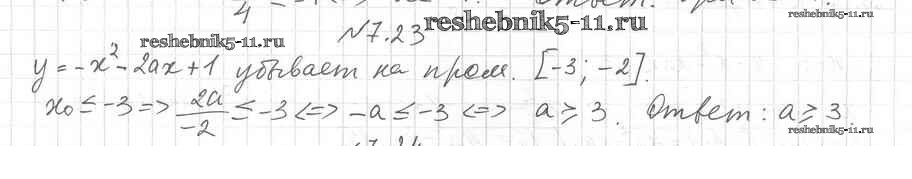 №7.23 reshebnik5-11.ru
reshebnik5-11.ru
y = -x² - 2ax + 1 убывает на пром. [-3; -2].
x₀ ≤ -3 => 2a/-2 ≤ -3 <=> -a ≤ -3 <=> a ≥ 3. Ответ: a ≥ 3.
reshebnik5-11.ru